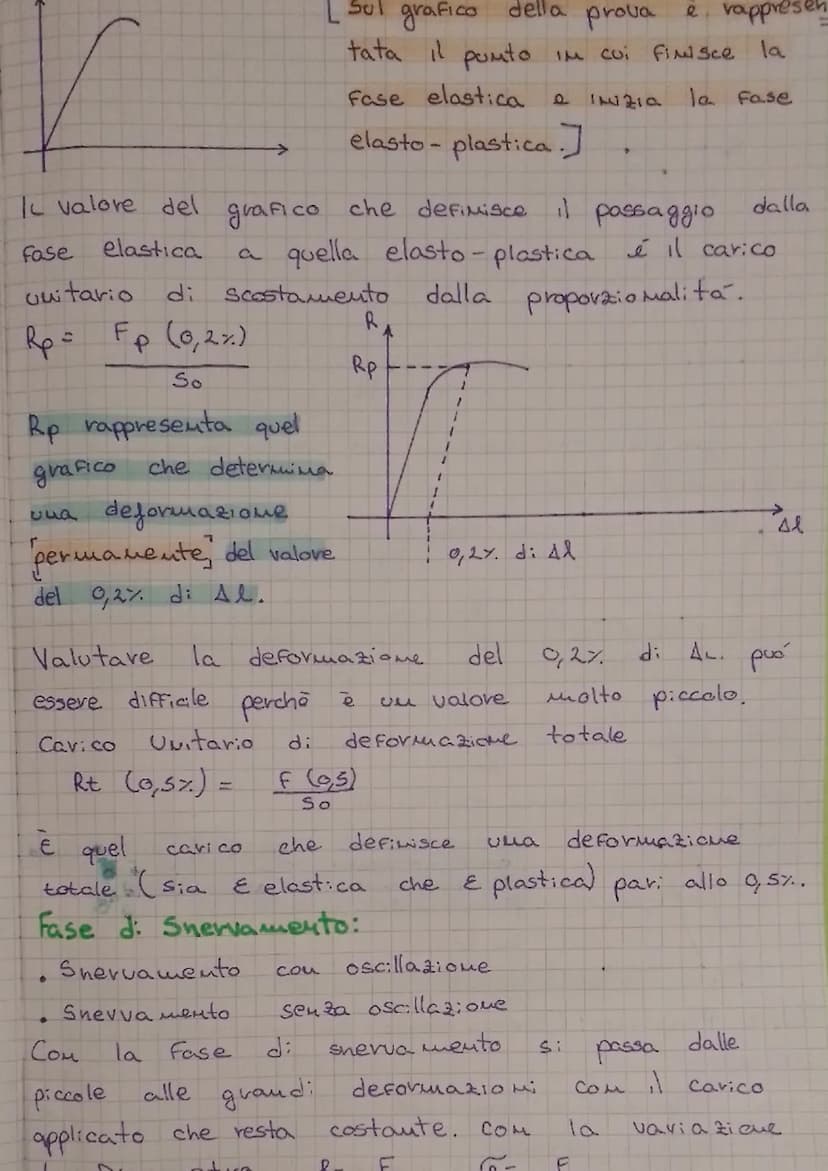 [ Sul grafico della prova è rappresen
tata il punto in cui finisce la
fase elastica e inizia la fase
elasto-plastica.]
Il valore del grafico che definisce il passaggio dalla
fase elastica a quella elasto-plastica é il carico
unitario di scostamento dalla proporzionalità.
Rp = Fp (0,2%)
S0
R
Rp
Δl
0,2% di Δl
Rp rappresenta quel
grafico che determina
una deformazione
[permanente] del valore
del 0,2% di Δl.
Valutare la deformazione del 0,2% di ΔL. può
essere difficile perchè è un valore molto piccolo.
Carico Unitario di deformazione totale
Rt (0,5%) = F (0,5)
S0
È quel carico che definisce una deformazione
totale (sia ε elastica che ε plastica) pari allo 0,5%.
Fase di Snervamento:
. Snervamento con oscillazione
. Snervamento senza oscillazione
Con la fase di snervamento si passa dalle
piccole alle grandi deformazioni con il carico
applicato che resta costante. con la variazione